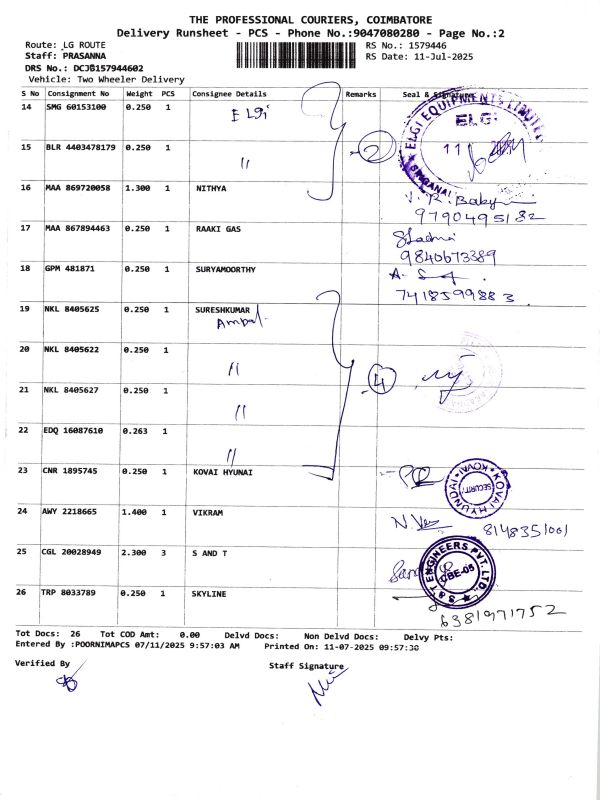 THE PROFESSIONAL COURIERS, COIMBATORE
Delivery Runsheet - PCS - Phone No.:9047080280 - Page No.:2
Route: LG ROUTE
RS No.: 1579446
Staff: PRASANNA
RS Date: 11-Jul-2025
DRS No.: DCJB157944602
Vehicle: Two Wheeler Delivery
S No Consignment No Weight PCS Consignee Details Remarks Seal & Signature
14 SMG 60153100 0.250 1 ELGi
15 BLR 4403478179 0.250 1 "
2
ELGI EQUIPMENTS LIMITED
ELGi
11
16 MAA 869720058 1.300 1 NITHYA
9790495182
17 MAA 867894463 0.250 1 RAAKI GAS
9840673389
18 GPM 481871 0.250 1 SURYAMOORTHY
7418599883
19 NKL 8405625 0.250 1 SURESHKUMAR
Ambal
20 NKL 8405622 0.250 1 "
21 NKL 8405627 0.250 1 "
4
22 EDQ 16087610 0.263 1 "
23 CNR 1895745 0.250 1 KOVAI HYUNAI
KOVAI HYUNDAI KOVAI
SECURITY
24 AWY 2218665 1.400 1 VIKRAM
8148351001
25 CGL 20028949 2.300 3 S AND T
S & T ENGINEERS PVT. LTD.
CBE-05
26 TRP 8033789 0.250 1 SKYLINE
6381971752
Tot Docs: 26 Tot COD Amt: 0.00 Delvd Docs: Non Delvd Docs: Delvy Pts:
Entered By :POORNIMAPCS 07/11/2025 9:57:03 AM Printed On: 11-07-2025 09:57:30
Verified By
Staff Signature